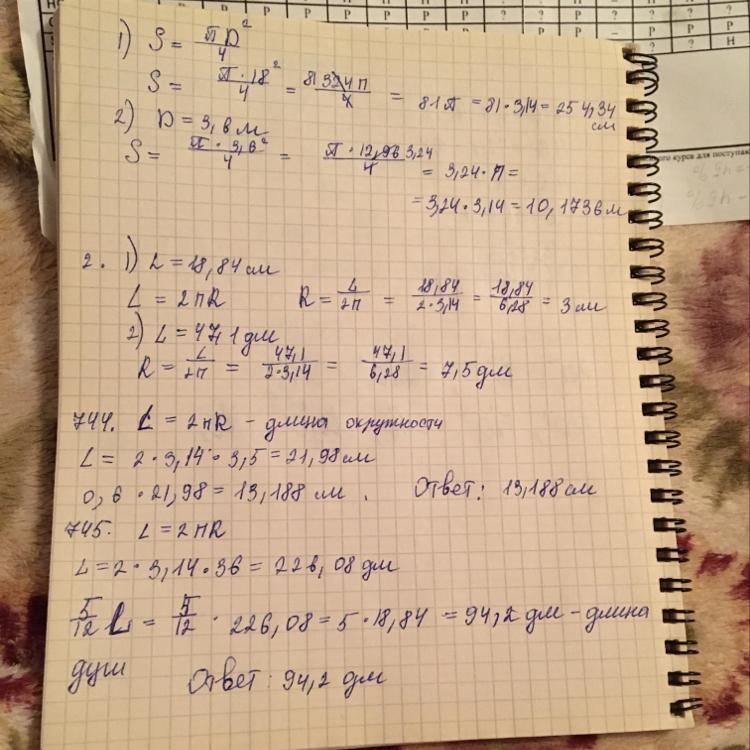 1) S = πD²/4
S = π·18²/4 = 81 324π/4 = 81π = 81·3,14 = 254,34 см
2) D = 3,6 м
S = π·3,6²/4 = π·12,96 3,24/4 = 3,24·π =
= 3,24·3,14 = 10,1736 м
2. 1) L = 18,84 см
L = 2πR R = L/2π = 18,84/2·3,14 = 18,84/6,28 = 3 см
2) L = 47,1 дм
R = L/2π = 47,1/2·3,14 = 47,1/6,28 = 7,5 дм
744. L = 2πR - длина окружности
L = 2·3,14·3,5 = 21,98 см
0,6·21,98 = 13,188 см. Ответ: 13,188 см
745. L = 2πR
L = 2·3,14·36 = 226,08 дм
5/12 L = 5/12 · 226,08 = 5·18,84 = 94,2 дм - длина
дуги Ответ: 94,2 дм